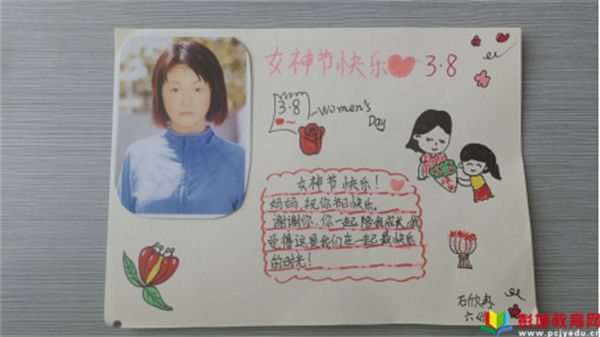 女神节快乐 3.8
3.8
Women's
Day
女神节快乐！
妈妈，祝你节日快乐。
谢谢你，你一起陪我成长，我
觉得这是我们在一起最快乐
的时光！
石欣冉
彭城教育网
www.pcjyedu.cn